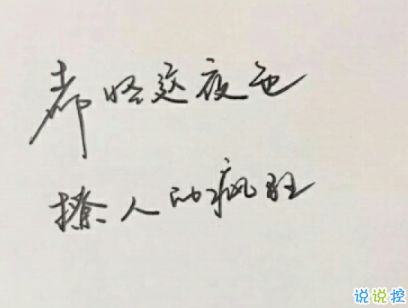 都怪这夜色
撩人的疯狂
说说控